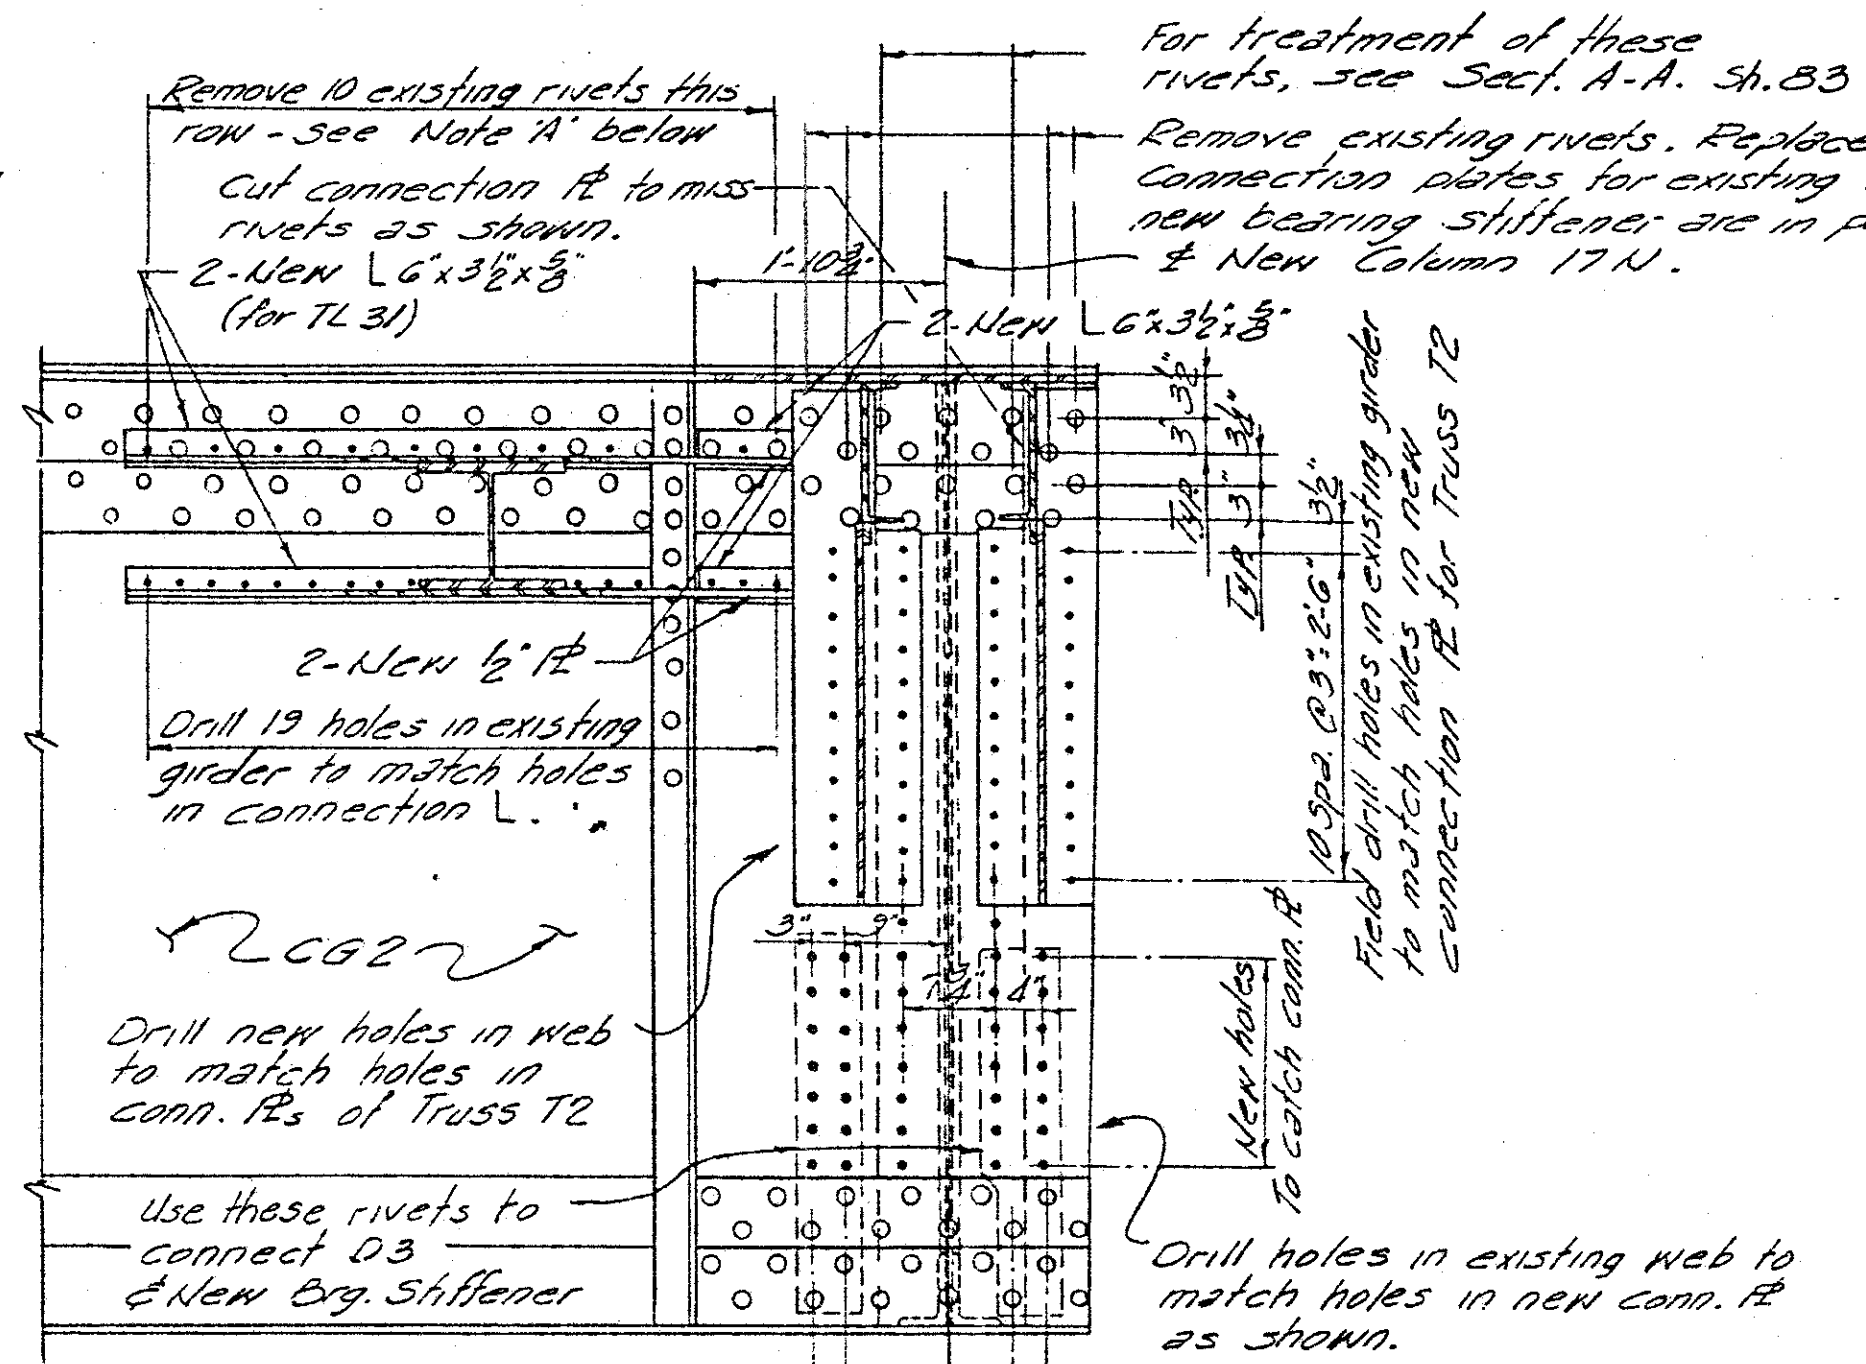 For treatment of these
rivets, see Sect. A-A. Sh. 83
Remove 10 existing rivets this
row - see Note 'A' below
Remove existing rivets. Replace
Connection plates for existing
new bearing stiffener are in
℄ New Column 17 N.
Cut connection ℙL to miss
rivets as shown.
1'-10 3/4"
2-New L 6" x 3 1/2" x 5/8"
(for TL 31)
2-New L 6" x 3 1/2" x 5/8"
3 1/2"
3"
Typ.
3 1/4"
3"
Typ.
3 1/2"
10 Spa. @ 3" = 2'-6"
Field drill holes in existing girder
to match holes in new
connection ℙL for Truss T2
2-New 1/2" ℙL
Drill 19 holes in existing
girder to match holes
in connection L.
CG2
3"
9"
4"
Drill new holes in web
to match holes in
conn. ℙLs of Truss T2
New holes
To catch conn. ℙL
Use these rivets to
connect D3
& New Brg. Stiffener
Drill holes in existing web to
match holes in new conn. ℙL
as shown.